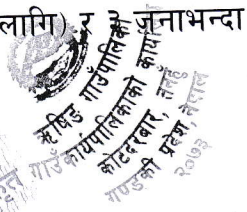 लागि) र ३ जनाभन्दा
ऋषिङ गाउँपालिका
गाउँकार्यपालिकाको कार्या
कोटदरबार, तनहुँ
गण्डकी प्रदेश नेपाल
२०७३